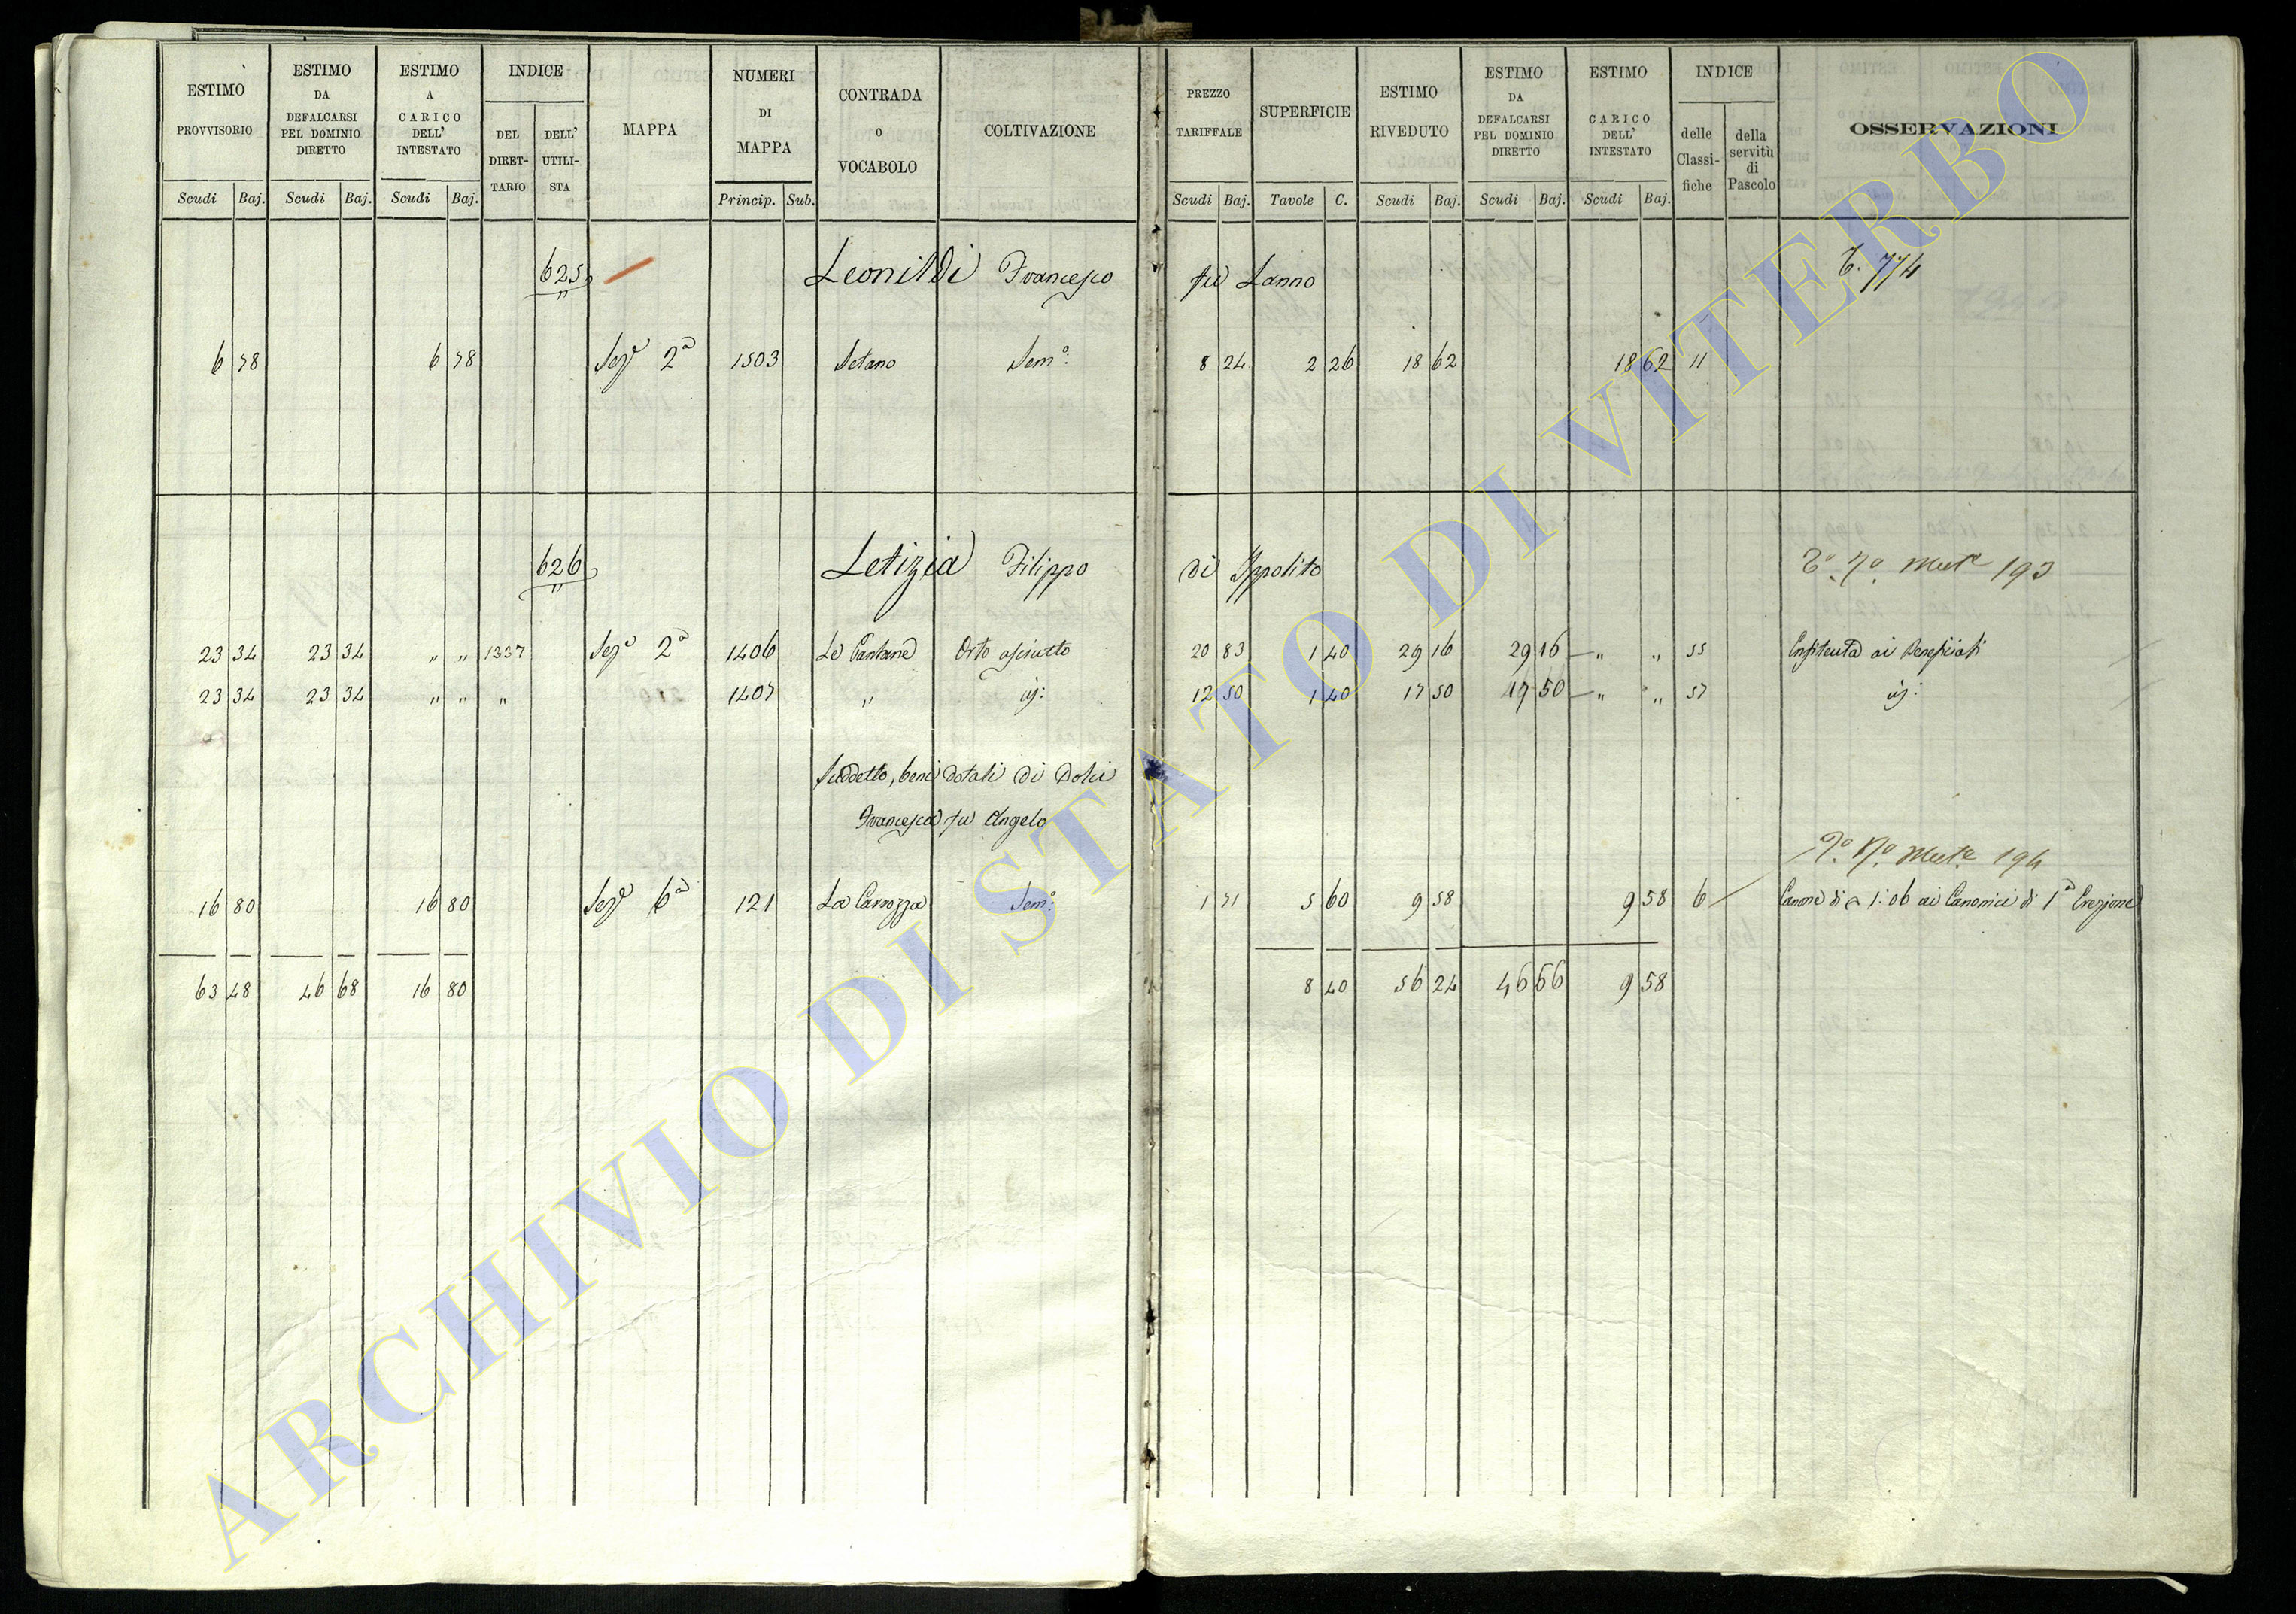 ESTIMO PROVVISORIO Scudi Baj. ESTIMO DA DEFALCARSI PEL DOMINIO DIRETTO Scudi Baj. ESTIMO A CARICO DELL' INTESTATO Scudi Baj. INDICE DEL DIRETTARIO DELL' UTILISTA MAPPA NUMERI DI MAPPA Princip. Sub. CONTRADA O VOCABOLO COLTIVAZIONE PREZZO TARIFFALE Scudi Baj. SUPERFICIE Tavole C. ESTIMO RIVEDUTO Scudi Baj. ESTIMO DA DEFALCARSI PEL DOMINIO DIRETTO Scudi Baj. ESTIMO A CARICO DELL' INTESTATO Scudi Baj. INDICE delle Classifiche della servitù di Pascolo OSSERVAZIONI
625 Leonildi Francesco fu Lanno 774
6 78 6 78 Sezᵉ 2ª 1503 Setano Semº: 8 24 2 26 18 62 18 62 11
626 Letizia Filippo di Ippolito 193
23 34 23 34 " " 1337 Sezᵉ 2ª 1406 Le Cantane Orto asciutto 20 83 1 40 29 16 29 16 " " 55 Enfiteuta ai Beneficiati
23 34 23 34 " " " 1407 " 12 50 1 40 17 50 17 50 " " 57
Suddetto, beni dotali di Dolci
Francesca fu Angelo
194
16 80 16 80 Sezᵉ 6ª 121 La Carrozza Semº: 1 71 5 60 9 58 9 58 6 Canone di 1:06 ai Canonici di 1ª Erezione
63 48 46 68 16 80 8 40 56 24 46 66 9 58
ARCHIVIO DI STATO DI VITERBO